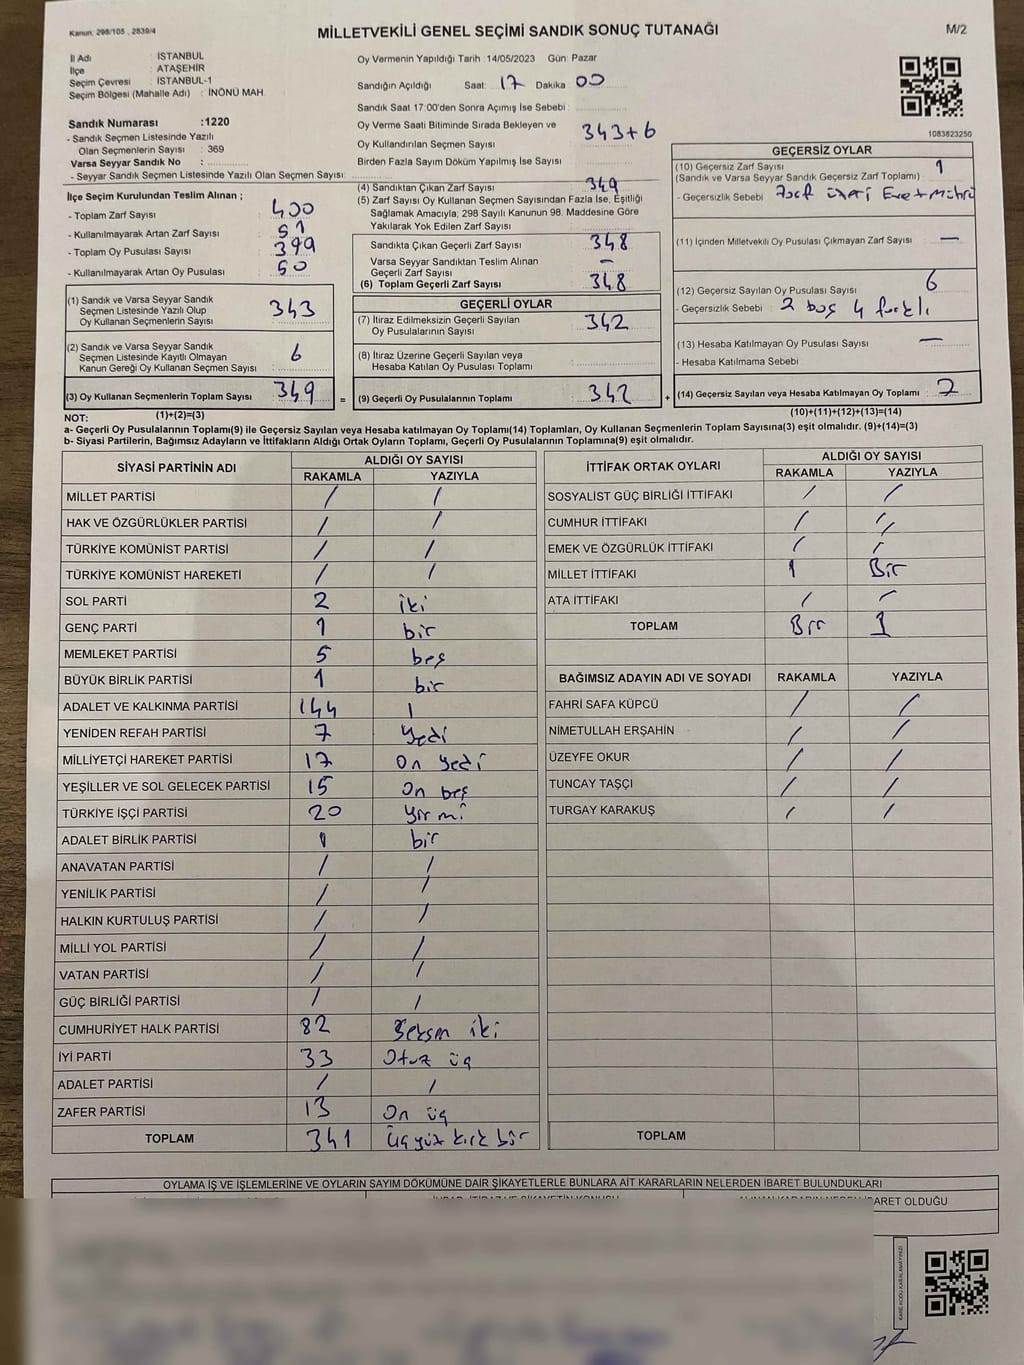 Kanun: 298/105 , 2839/4
MİLLETVEKİLİ GENEL SEÇİMİ SANDIK SONUÇ TUTANAĞI
M/2
İl Adı : İSTANBUL
İlçe : ATAŞEHİR
Seçim Çevresi : İSTANBUL-1
Seçim Bölgesi (Mahalle Adı) : İNÖNÜ MAH.
Sandık Numarası :1220
- Sandık Seçmen Listesinde Yazılı
Olan Seçmenlerin Sayısı : 369
Varsa Seyyar Sandık No :
- Seyyar Sandık Seçmen Listesinde Yazılı Olan Seçmen Sayısı:
Oy Vermenin Yapıldığı Tarih :14/05/2023 Gün: Pazar
Sandığın Açıldığı Saat: 17 Dakika 00
Sandık Saat 17:00'den Sonra Açılmış İse Sebebi :
Oy Verme Saati Bitiminde Sırada Bekleyen ve
Oy Kullandırılan Seçmen Sayısı 343+6
Birden Fazla Sayım Döküm Yapılmış İse Sayısı
1083623250
İlçe Seçim Kurulundan Teslim Alınan ;
- Toplam Zarf Sayısı : 400
- Kullanılmayarak Artan Zarf Sayısı : 51
- Toplam Oy Pusulası Sayısı : 399
- Kullanılmayarak Artan Oy Pusulası : 50
(1) Sandık ve Varsa Seyyar Sandık
Seçmen Listesinde Yazılı Olup
Oy Kullanan Seçmenlerin Sayısı : 343
(2) Sandık ve Varsa Seyyar Sandık
Seçmen Listesinde Kayıtlı Olmayan
Kanun Gereği Oy Kullanan Seçmen Sayısı : 6
(3) Oy Kullanan Seçmenlerin Toplam Sayısı : 349 =
(4) Sandıktan Çıkan Zarf Sayısı 349
(5) Zarf Sayısı Oy Kullanan Seçmen Sayısından Fazla İse, Eşitliği
Sağlamak Amacıyla; 298 Sayılı Kanunun 98. Maddesine Göre
Yakılarak Yok Edilen Zarf Sayısı :
Sandıkta Çıkan Geçerli Zarf Sayısı : 348
Varsa Seyyar Sandıktan Teslim Alınan
Geçerli Zarf Sayısı : -
(6) Toplam Geçerli Zarf Sayısı : 348
GEÇERLİ OYLAR
(7) İtiraz Edilmeksizin Geçerli Sayılan
Oy Pusulalarının Sayısı : 342
(8) İtiraz Üzerine Geçerli Sayılan veya
Hesaba Katılan Oy Pusulası Toplamı :
(9) Geçerli Oy Pusulalarının Toplamı : 342 +
GEÇERSİZ OYLAR
(10) Geçersiz Zarf Sayısı : 1
(Sandık ve Varsa Seyyar Sandık Geçersiz Zarf Toplamı)
- Geçersizlik Sebebi : Zarf üzeri Evet Mührü
(11) İçinden Milletvekili Oy Pusulası Çıkmayan Zarf Sayısı : -
(12) Geçersiz Sayılan Oy Pusulası Sayısı : 6
- Geçersizlik Sebebi : 2 boş 4 farklı
(13) Hesaba Katılmayan Oy Pusulası Sayısı : -
- Hesaba Katılmama Sebebi :
(14) Geçersiz Sayılan veya Hesaba Katılmayan Oy Toplamı : 7
NOT: (1)+(2)=(3) (10)+(11)+(12)+(13)=(14)
a- Geçerli Oy Pusulalarının Toplamı(9) ile Geçersiz Sayılan veya Hesaba katılmayan Oy Toplamı(14) Toplamları, Oy Kullanan Seçmenlerin Toplam Sayısına(3) eşit olmalıdır. (9)+(14)=(3)
b- Siyasi Partilerin, Bağımsız Adayların ve İttifakların Aldığı Ortak Oyların Toplamı, Geçerli Oy Pusulalarının Toplamına(9) eşit olmalıdır.
SİYASİ PARTİNİN ADI ALDIĞI OY SAYISI
RAKAMLA YAZIYLA
MİLLET PARTİSİ / /
HAK VE ÖZGÜRLÜKLER PARTİSİ / /
TÜRKİYE KOMÜNİST PARTİSİ / /
TÜRKİYE KOMÜNİST HAREKETİ / /
SOL PARTİ 2 iki
GENÇ PARTİ 1 bir
MEMLEKET PARTİSİ 5 beş
BÜYÜK BİRLİK PARTİSİ 1 bir
ADALET VE KALKINMA PARTİSİ 144 1
YENİDEN REFAH PARTİSİ 7 Yedi
MİLLİYETÇİ HAREKET PARTİSİ 17 On yedi
YEŞİLLER VE SOL GELECEK PARTİSİ 15 On beş
TÜRKİYE İŞÇİ PARTİSİ 20 Yirmi
ADALET BİRLİK PARTİSİ 1 bir
ANAVATAN PARTİSİ / /
YENİLİK PARTİSİ / /
HALKIN KURTULUŞ PARTİSİ / /
MİLLİ YOL PARTİSİ / /
VATAN PARTİSİ / /
GÜÇ BİRLİĞİ PARTİSİ / /
CUMHURİYET HALK PARTİSİ 82 Seksen iki
İYİ PARTİ 33 Otuz üç
ADALET PARTİSİ / /
ZAFER PARTİSİ 13 On üç
TOPLAM 341 Üç yüz kırk bir
İTTİFAK ORTAK OYLARI ALDIĞI OY SAYISI
RAKAMLA YAZIYLA
SOSYALİST GÜÇ BİRLİĞİ İTTİFAKI / /
CUMHUR İTTİFAKI / /
EMEK VE ÖZGÜRLÜK İTTİFAKI / /
MİLLET İTTİFAKI 1 Bir
ATA İTTİFAKI / /
TOPLAM Bir 1
BAĞIMSIZ ADAYIN ADI VE SOYADI RAKAMLA YAZIYLA
FAHRİ SAFA KÜPCÜ / /
NİMETULLAH ERŞAHİN / /
ÜZEYFE OKUR / /
TUNCAY TAŞÇI / /
TURGAY KARAKUŞ / /
TOPLAM
OYLAMA İŞ VE İŞLEMLERİNE VE OYLARIN SAYIM DÖKÜMÜNE DAİR ŞİKAYETLERLE BUNLARA AİT KARARLARIN NELERDEN İBARET BULUNDUKLARI
ARET OLDUĞU
KARE KODU KARALAMAYINIZ!